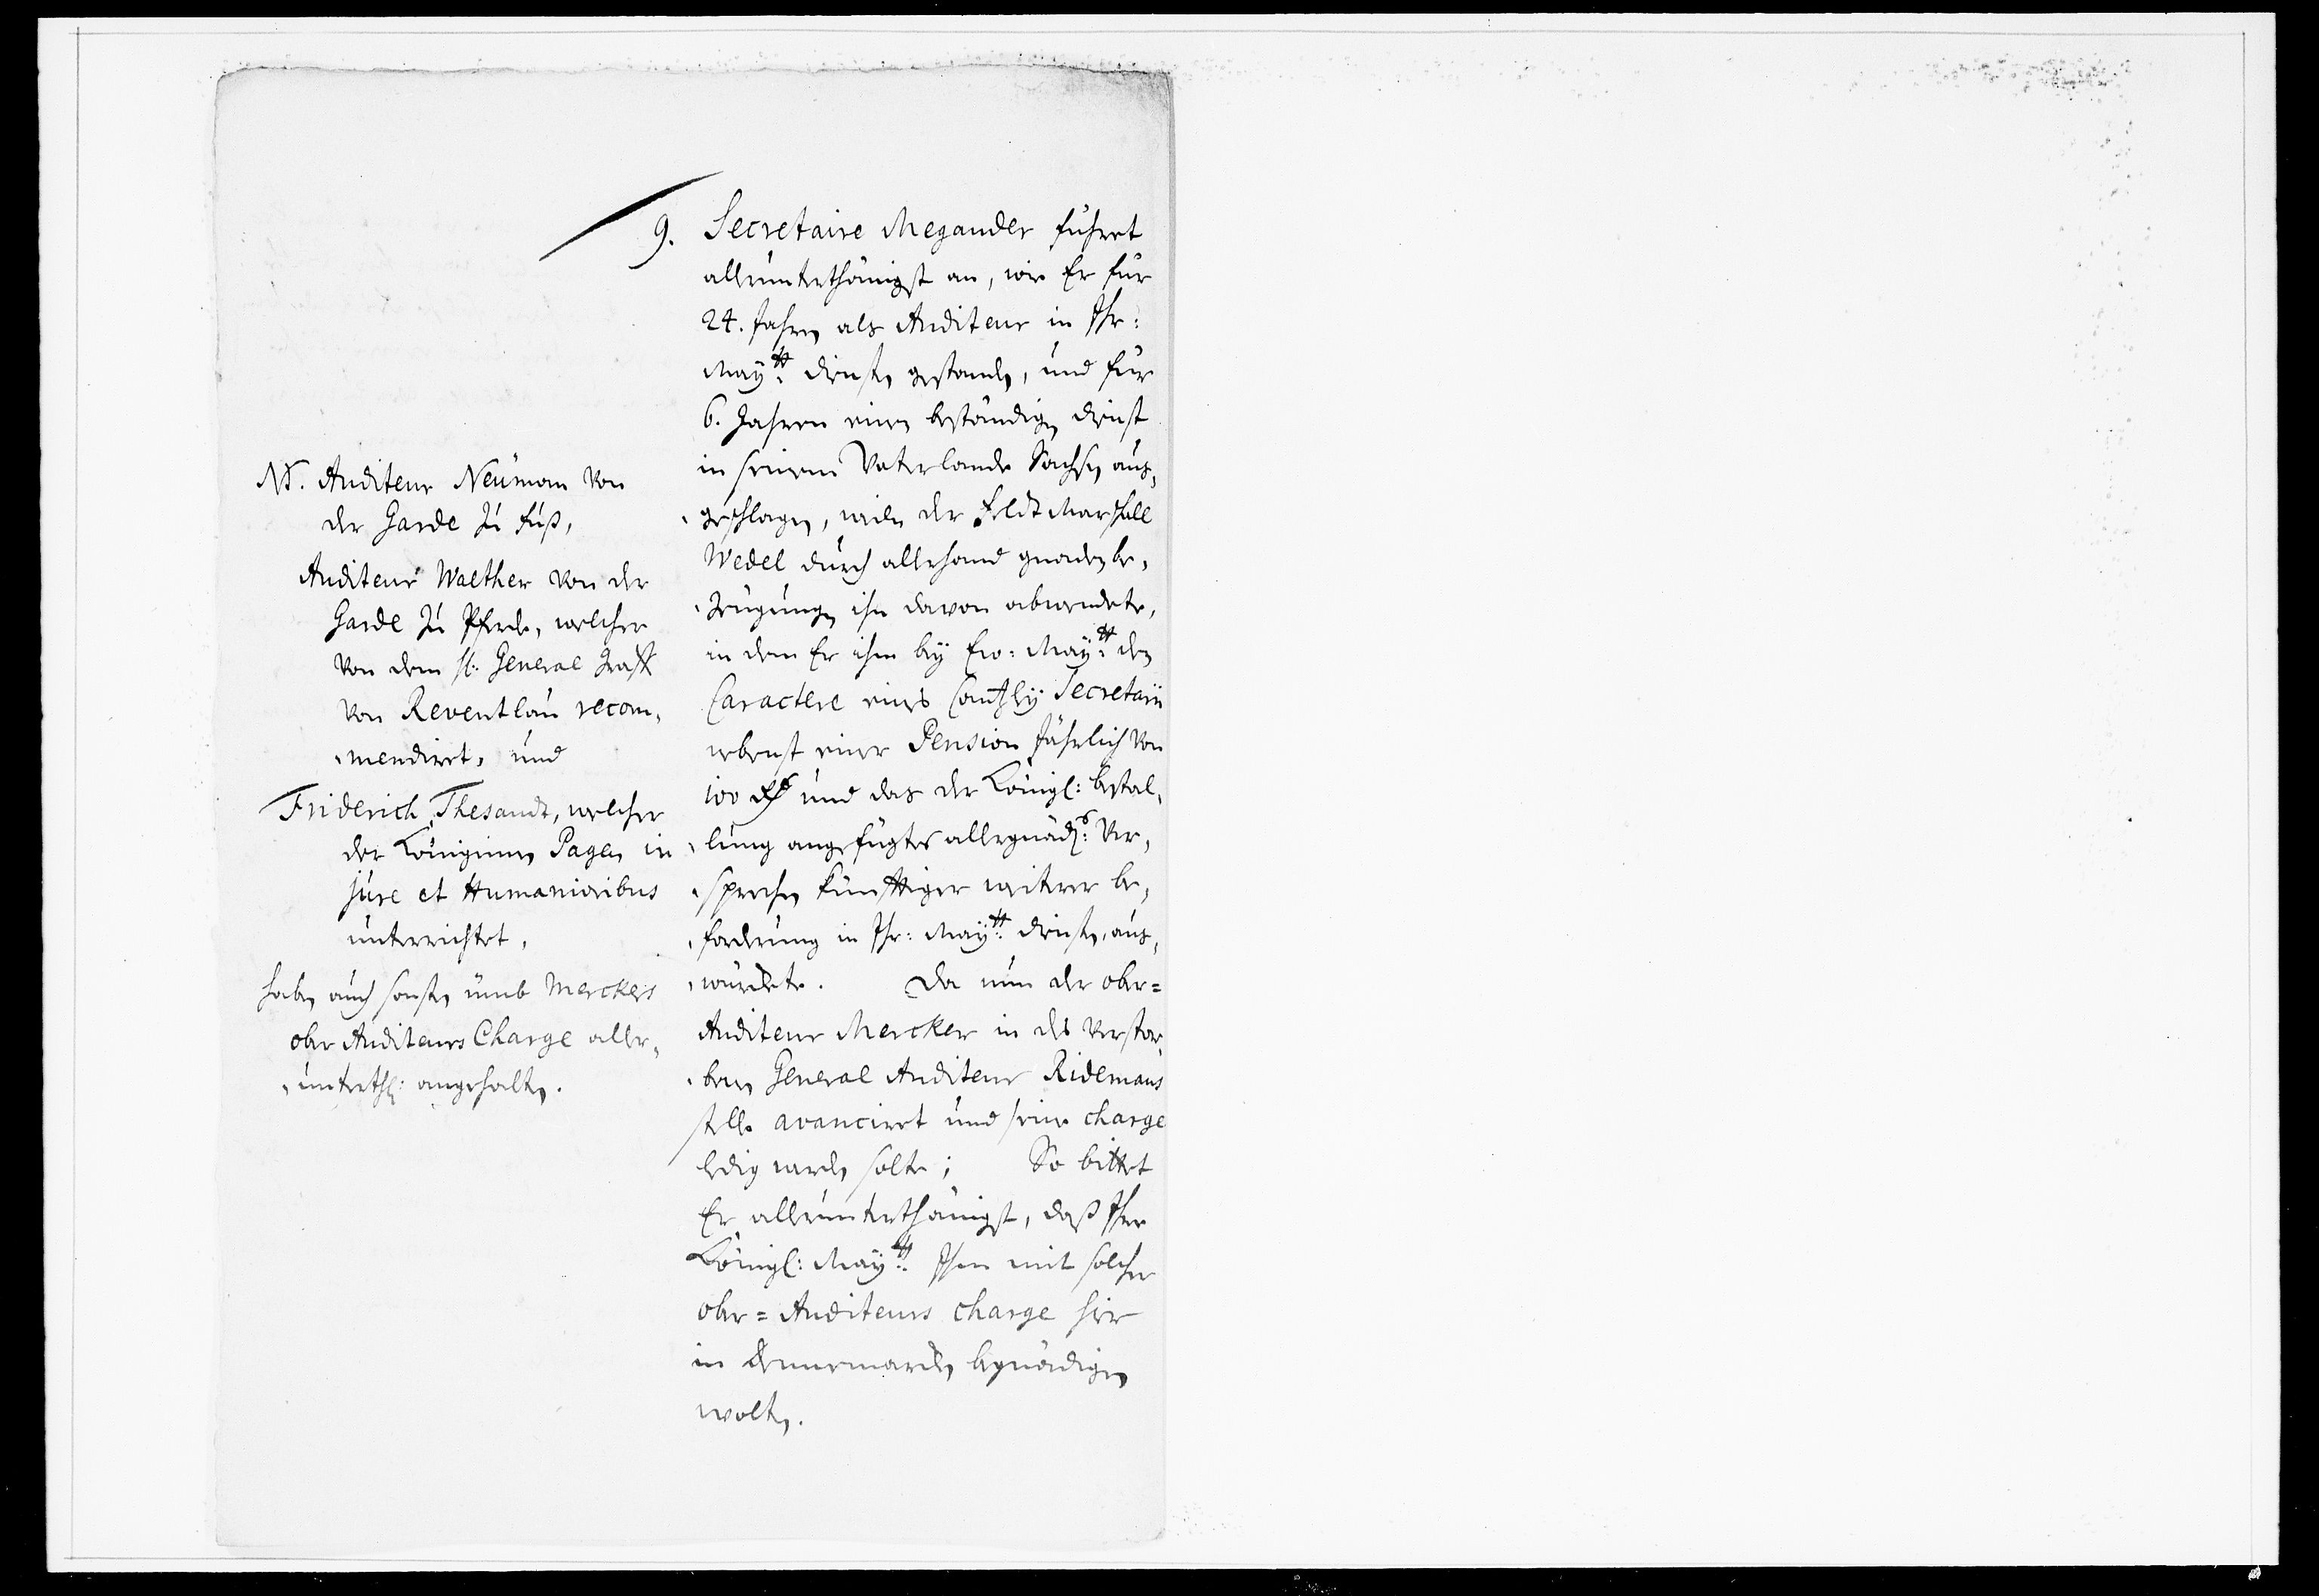 9. Secretaire Megander führet
allerunterthänigst an, wie Er für
24. Jahren als Auditeur in Ihr:
Maytt: diensten gestanden, und für
6. Jahren einen beständigen dienst
in seinem Vaterlande Sachsen aus-
geschlagen, weiln der Feldt Marschall
Wedel durch allerhand gnaden be-
zeugungen ihn davon abwendete,
in dem Er ihm bey Ew: Maytt: den
Caractere eines Cantzley Secretarii
nebenst einer Pension jährlich von
100 und das der Königl: bestal-
lung angefügtes allergnäds: Ver-
sprechen künfftiger weiterer be-
forderung in Ihr: Maytt: diensten, aus-
würckete. Da nun der ober=
Auditeur Mercker in des verstor-
benen General Auditeur Ridemans
stelle avanciret und seine charge
ledig werden solte; So bittet
Er allerunterthänigst, daß Ihre
Königl: Maytt: Ihm mit solcher
ober=Auditeurs charge hier
in Dennemarck begnädigen
wolten.
NB. Auditeur Neuman von
der Garde zu fuß,
Auditeur Walther von der
Garde zu Pferde, welcher
von dem H: General Graff
von Reventlau recom-
mendiret, und
Friderich Thesandt, welcher
der Königinnen Pagen in
jure et Humanioribus
unterrichtet,
haben auch sonsten umb Merckers
ober Auditeurs Charge aller-
unterth: angehalten.